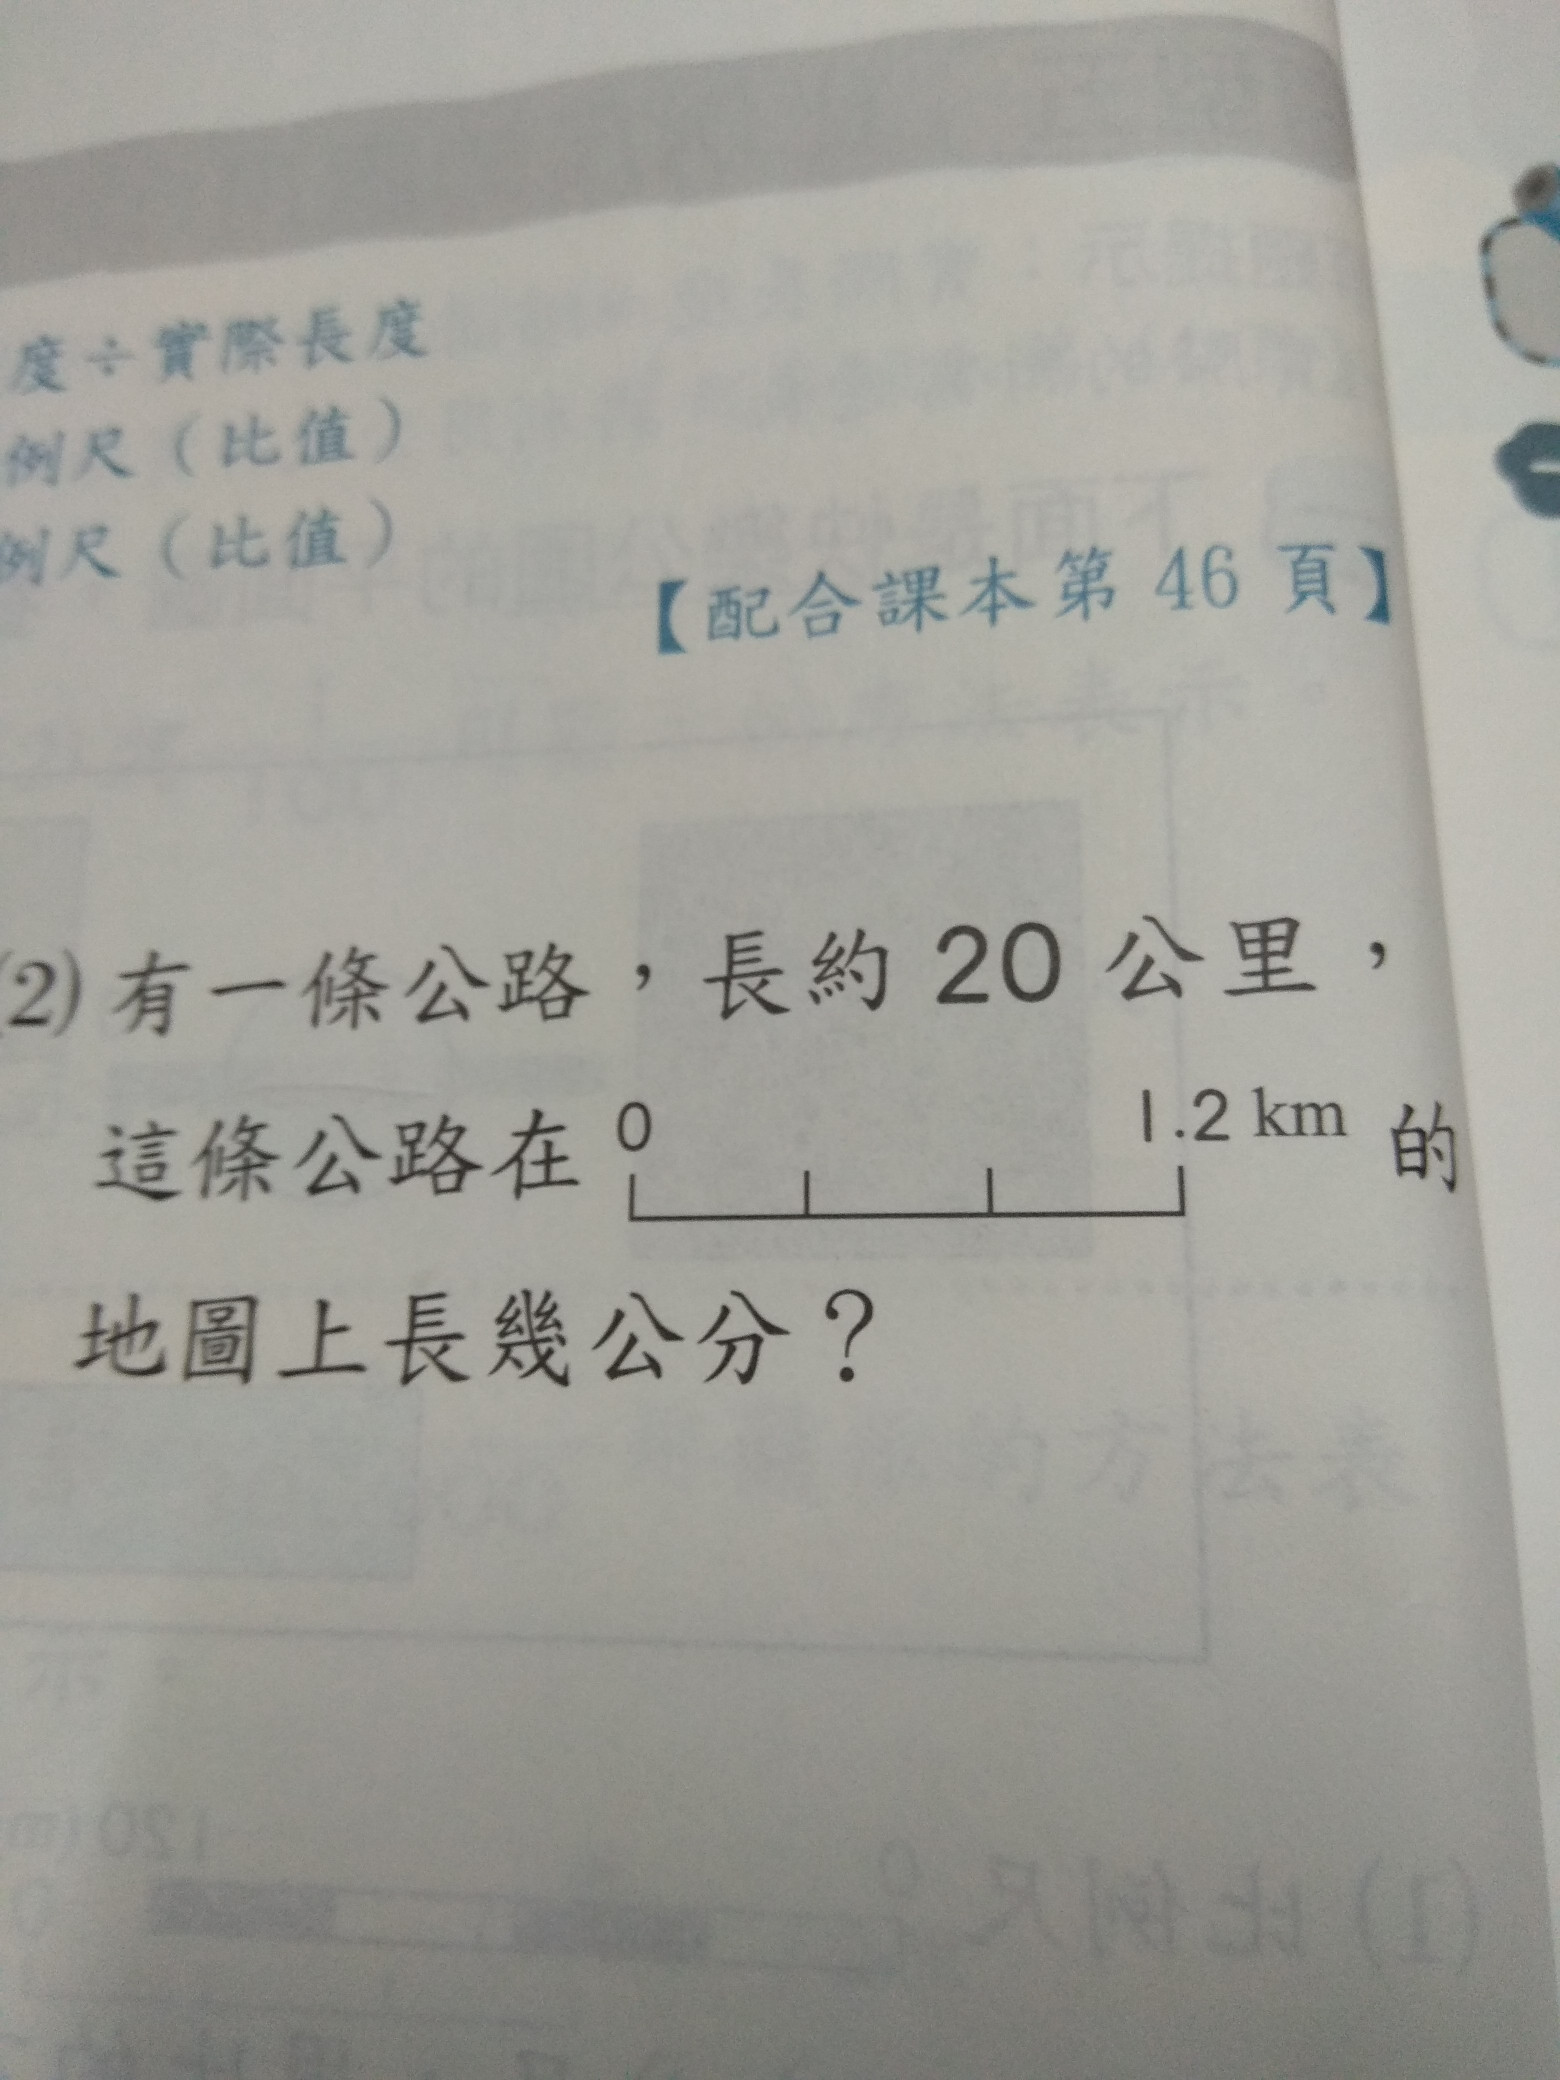 度÷實際長度
例尺（比值）
例尺（比值）
【配合課本第 46 頁】
(2) 有一條公路，長約 20 公里，
這條公路在 0 1.2 km 的
地圖上長幾公分？